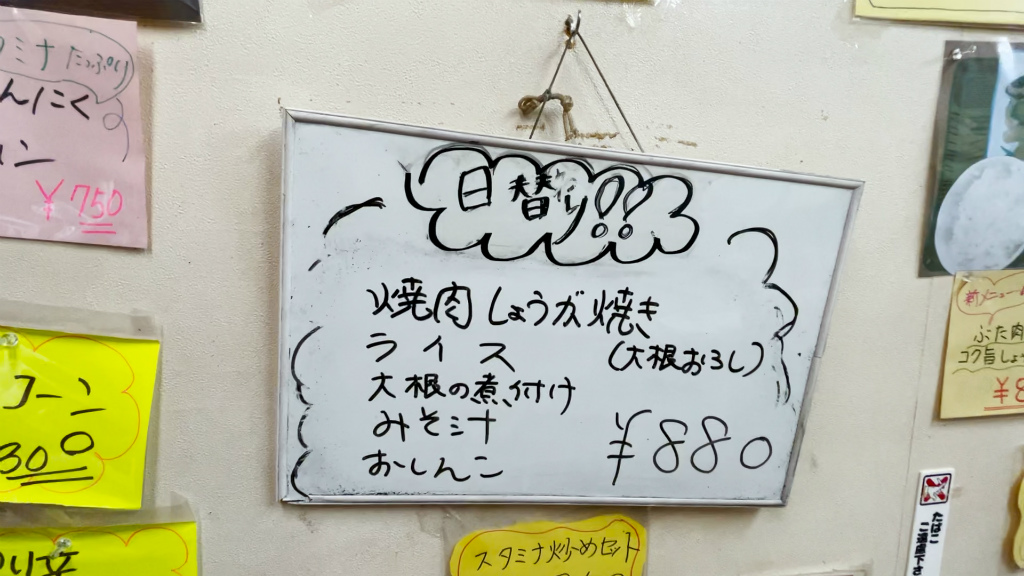 スタミナ たっぷり
んにく
¥750
日替り!!
焼肉しょうが焼き
ライス (大根おろし)
大根の煮付け
みそ汁
おしんこ
¥880
コーン
300
スタミナ炒めセット
新メニュー
ぶた肉
コク旨しょ
たばこ